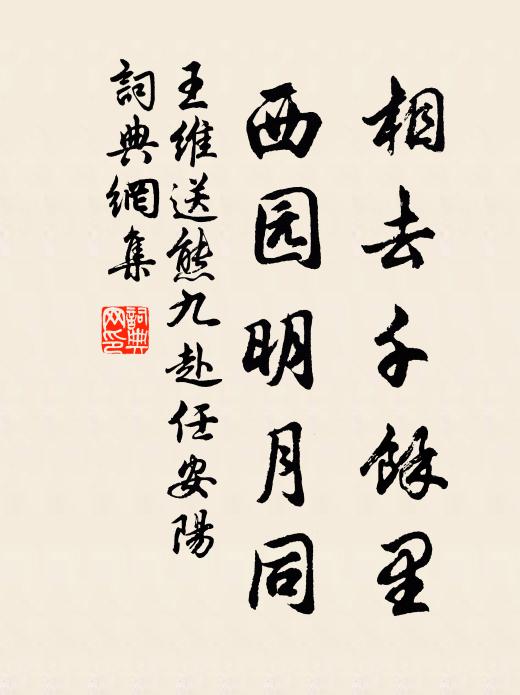 相去千餘里
西园明月同
王維送熊九赴任安陽
詞典網集
詞典网印